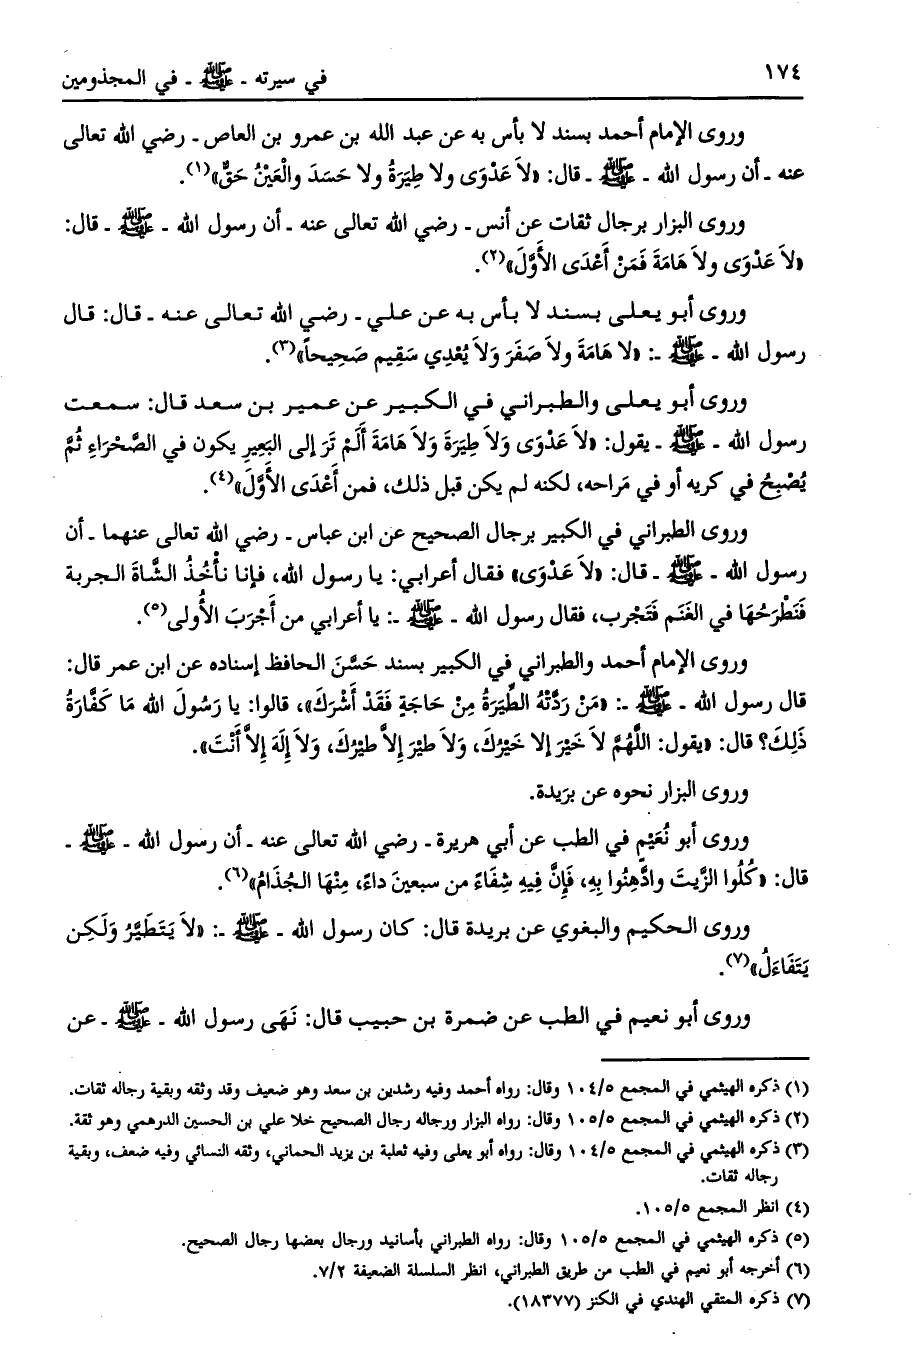 ١٧٤ في سيرته ـ ﷺ ـ في المجذومين
وروى الإمام أحمد بسند لا بأس به عن عبد الله بن عمرو بن العاص ـ رضي الله تعالى
عنه ـ أن رسول الله ـ ﷺ ـ قال: «لاَ عَدْوَى ولا طِيَرَةُ ولا حَسَدَ والْعَيْنُ حَقٌّ»(١).
وروى البزار برجال ثقات عن أنس ـ رضي الله تعالى عنه ـ أن رسول الله ـ ﷺ ـ قال:
«لاَ عَدْوَى ولاَ هَامَةَ فَمَنْ أَعْدَى الأَوَّلَ»(٢).
وروى أبو يعلى بسند لا بأس به عن علي ـ رضي الله تعالى عنه ـ قال: قال
رسول الله ـ ﷺ ـ: «لا هَامَةَ ولاَ صَفَرَ وَلاَ يُعْدِي سَقِيم صَحِيحاً»(٣).
وروى أبو يعلى والطبراني في الكبير عن عمير بن سعد قال: سمعت
رسول الله ـ ﷺ ـ يقول: «لاَ عَدْوَى وَلاَ طِيَرَةَ وَلاَ هَامَةَ أَلَمْ تَرَ إلى البَعِيرِ يكون في الصَّحْرَاءِ ثُمَّ
يُصْبِحُ في كربه أو في مَراحه، لكنه لم يكن قبل ذلك، فمن أَعْدَى الأَوَّلَ»(٤).
وروى الطبراني في الكبير برجال الصحيح عن ابن عباس ـ رضي الله تعالى عنهما ـ أن
رسول الله ـ ﷺ ـ قال: «لاَ عَدْوَى» فقال أعرابي: يا رسول الله، فإنا نأْخُذُ الشَّاةَ الجربة
فَنَطْرَحُهَا في الغَنَم فَتَجْرب، فقال رسول الله ـ ﷺ ـ: يا أعرابي من أَجْرَبَ الأُولى(٥).
وروى الإمام أحمد والطبراني في الكبير بسند حَسَّنَ الحافظ إسناده عن ابن عمر قال:
قال رسول الله ـ ﷺ ـ: «مَنْ رَدَّتْهُ الطِّيَرَةُ مِنْ حَاجَةٍ فَقَدْ أَشْرَكَ»، قالوا: يا رَسُولَ الله مَا كَفَّارَةُ
ذَلِكَ؟ قال: «يقول: اللَّهُمَّ لاَ خَيْرَ إلا خَيْرُكَ، وَلاَ طيْرَ إِلاَّ طيْرُكَ، وَلاَ إِلَهَ إِلاَّ أَنْتَ».
وروى البزار نحوه عن برَيدة.
وروى أبو نُعَيْمٍ في الطب عن أبي هريرة ـ رضي الله تعالى عنه ـ أن رسول الله ـ ﷺ ـ
قال: «كُلُوا الزَّيتَ وادَّهِنُوا بِهِ، فَإِنَّ فِيهِ شِفَاءً من سبعينَ داءً، مِنْهَا الجُذَامُ»(٦).
وروى الحكيم والبغوي عن بريدة قال: كان رسول الله ـ ﷺ ـ: «لاَ يَتَطَيَّرُ وَلَكِن
يَتَفَاءَلُ»(٧).
وروى أبو نعيم في الطب عن ضمرة بن حبيب قال: نَهَى رسول الله ـ ﷺ ـ عن
(١) ذكره الهيثمي في المجمع ١٠٤/٥ وقال: رواه أحمد وفيه رشدين بن سعد وهو ضعيف وقد وثقه وبقية رجاله ثقات.
(٢) ذكره الهيثمي في المجمع ١٠٥/٥ وقال: رواه البزار ورجاله رجال الصحيح خلا علي بن الحسين الدرهمي وهو ثقة.
(٣) ذكره الهيثمي في المجمع ١٠٤/٥ وقال: رواه أبو يعلى وفيه ثعلبة بن يزيد الحماني، وثقه النسائي وفيه ضعف، وبقية
رجاله ثقات.
(٤) انظر المجمع ١٠٥/٥.
(٥) ذكره الهيثمي في المجمع ١٠٥/٥ وقال: رواه الطبراني بأسانيد ورجال بعضها رجال الصحيح.
(٦) أخرجه أبو نعيم في الطب من طريق الطبراني، انظر السلسلة الضعيفة ٧/٢.
(٧) ذكره المتقي الهندي في الكنز (١٨٣٧٧).